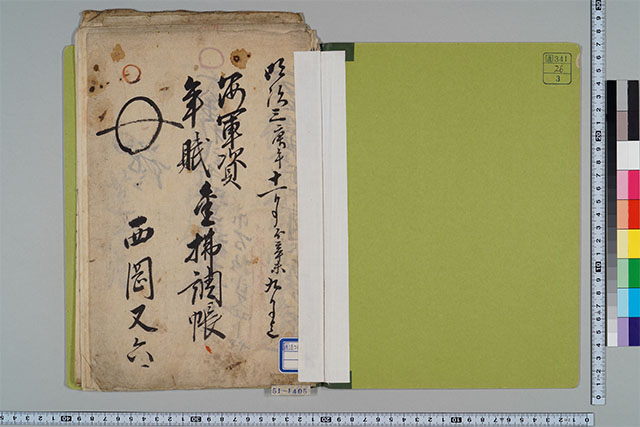 明治三庚午十一月ゟ辛未九月迄
海軍資
年賦金払調帳
西岡又六
函341
26
3
51-1405